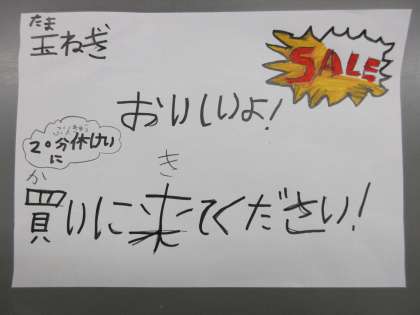 たま
玉ねぎ
SALE
おいしいよ!
20分休けい
に
か き
買いに来てください!